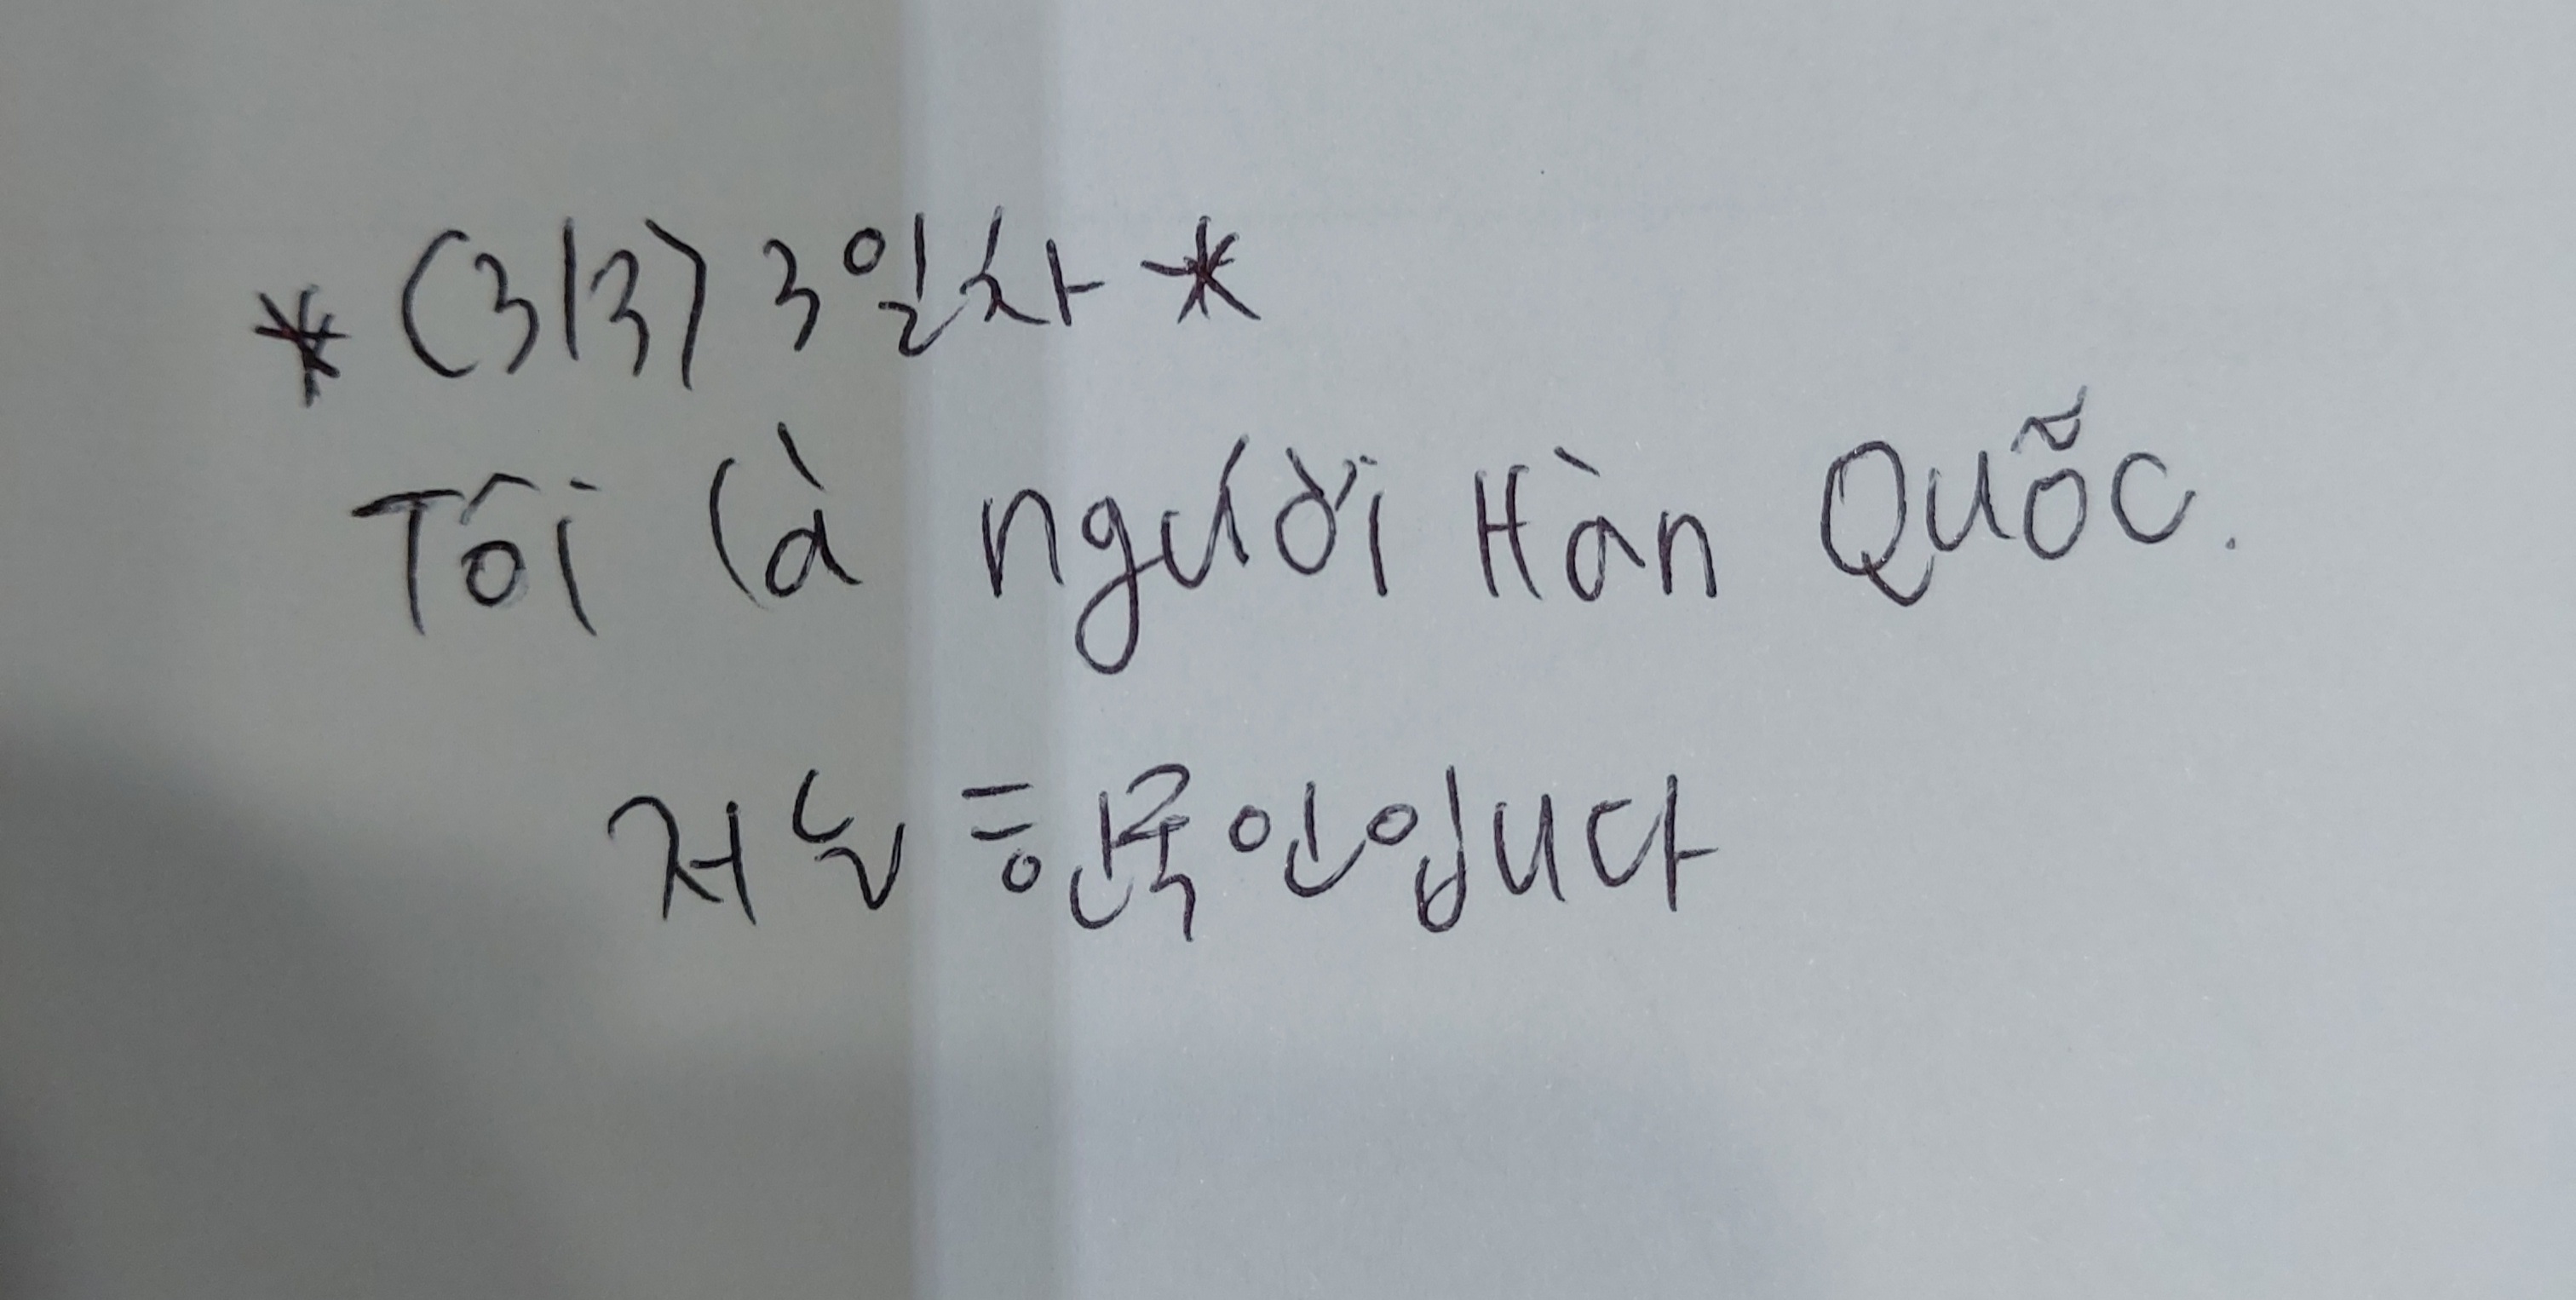 * (3/3) 3일차 *
Tôi là người Hàn Quỗc.
저는 한국인입니다